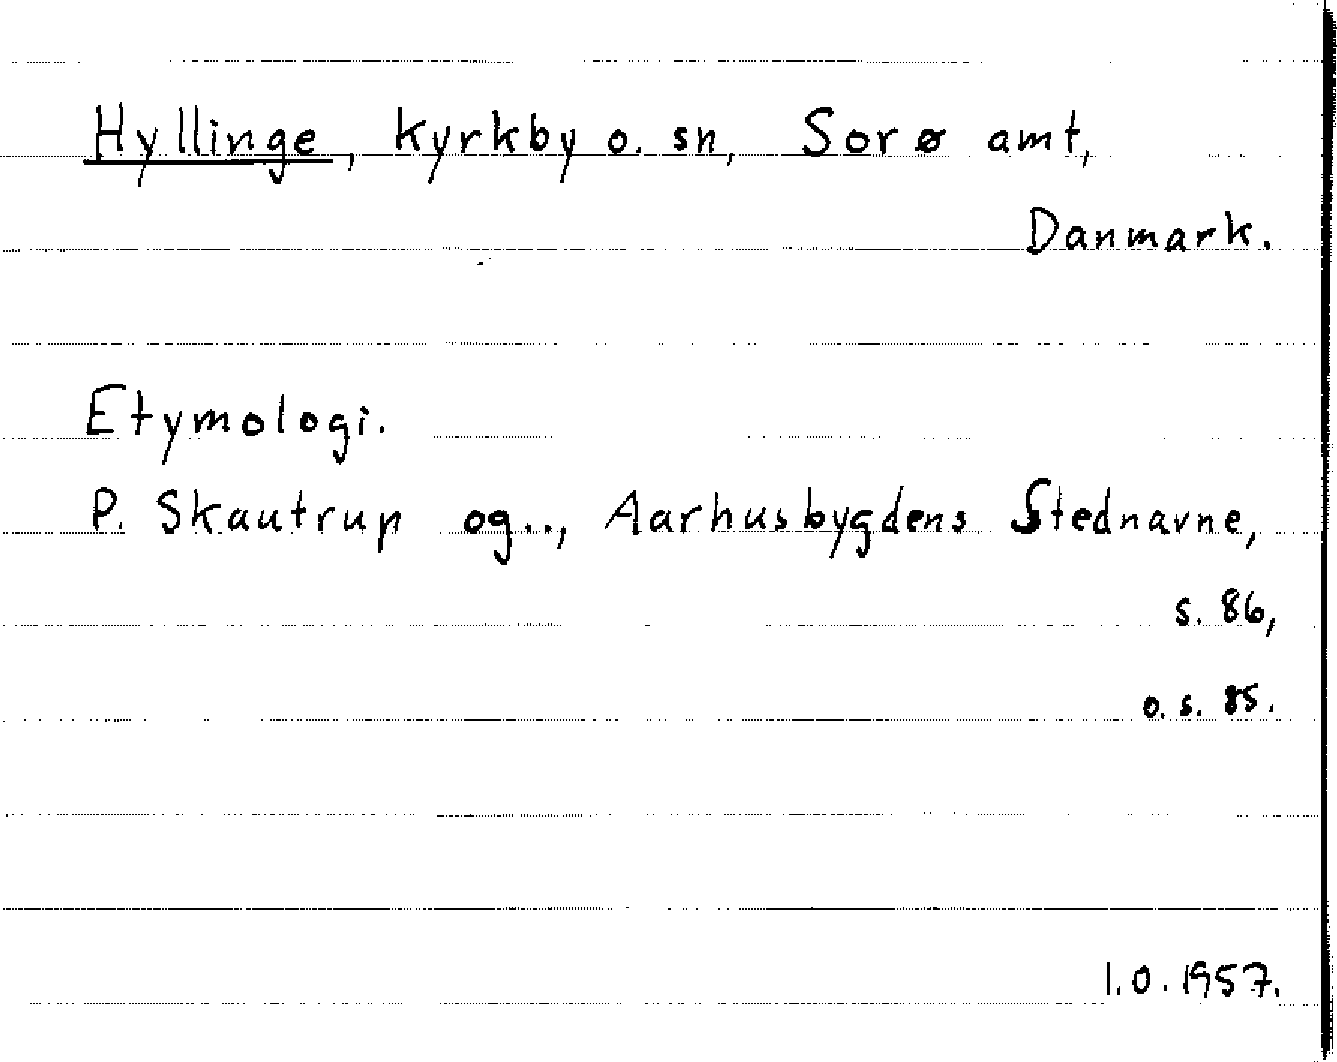 Hyllinge, kyrkby o. sn, Sorø amt,
Danmark.
Etymologi.
P. Skautrup og.., Aarhusbygdens Stednavne,
s. 86,
o. s. 85.
1.0.1957.